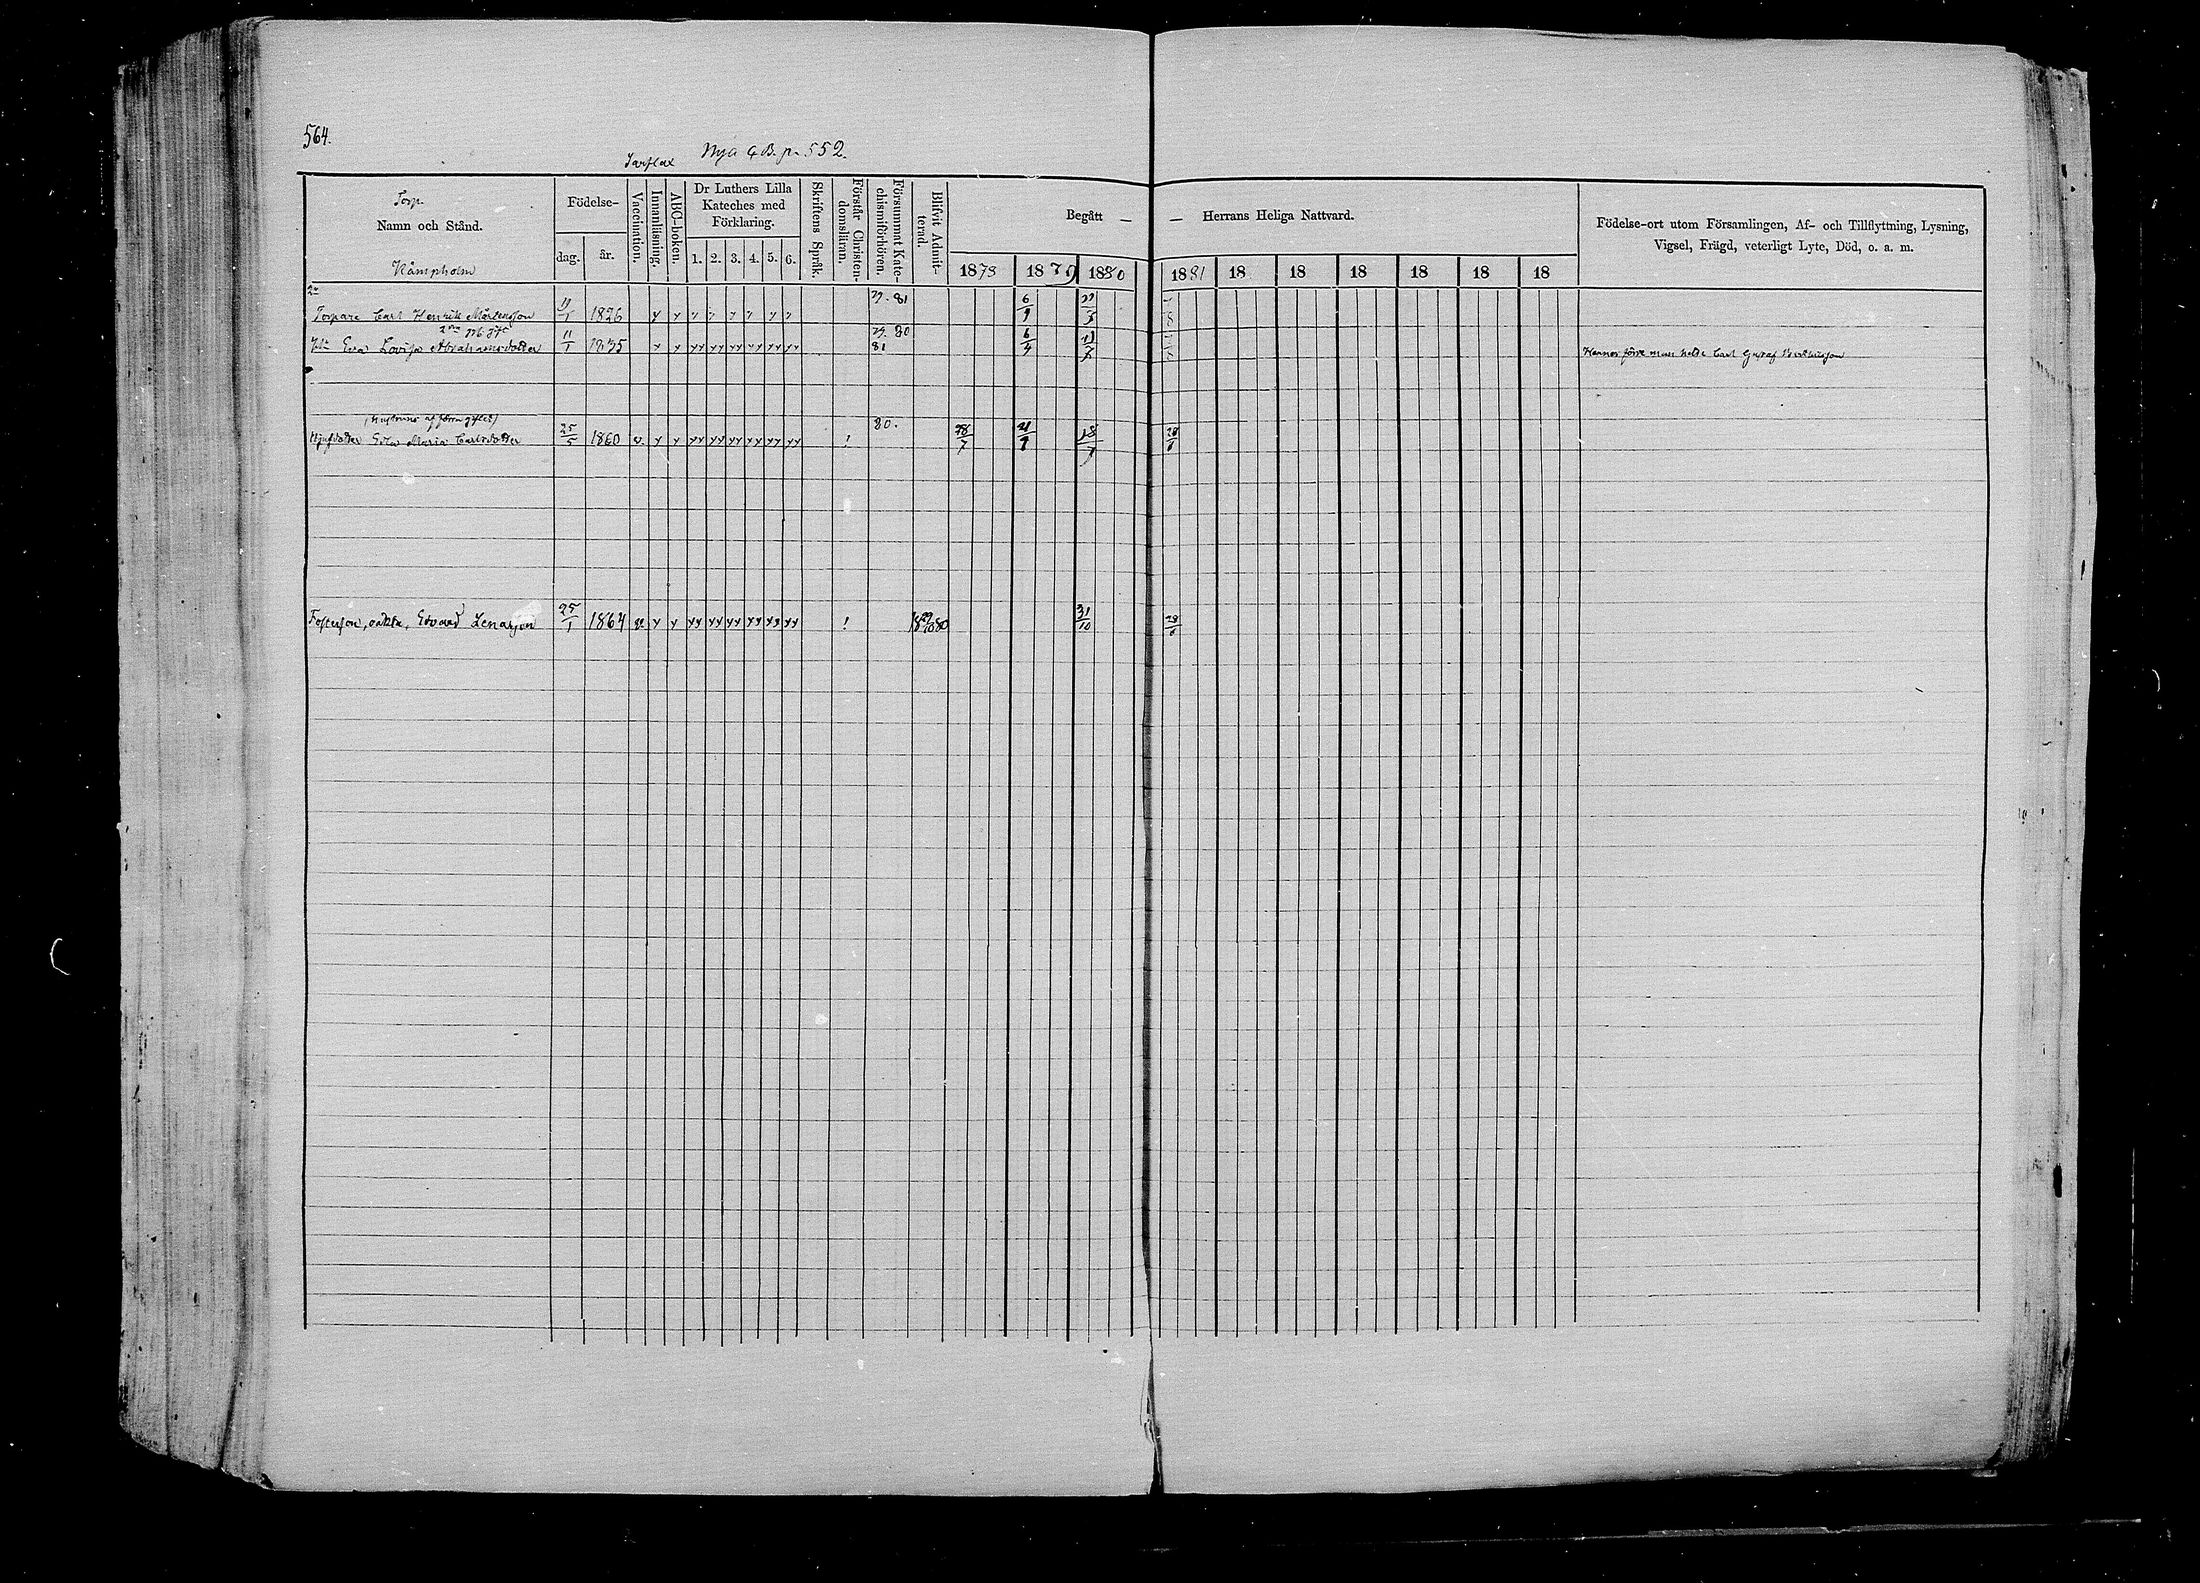 564.
Sarflax Nya C.B. p. 552.
Torp
Namn och Stånd.
Kämpholm
Födelse-
dag.
år.
Vaccination.
Innanläsning.
ABC-boken.
Dr Luthers Lilla
Kateches med
Förklaring.
1. 2. 3. 4. 5. 6.
Skriftens Språk.
Förstår Christen-
domsläran.
Försummat Kate-
chismiförhören.
Blifvit Admit-
terad.
Begått — — Herrans Heliga Nattvard.
1878 1879 1880 1881 18 18 18 18 18 18
Födelse-ort utom Församlingen, Af- och Tillflyttning, Lysning,
Vigsel, Frägd, veterligt Lyte, Död, o. a. m.
Torpare Carl Henrik Mårtensson 1826 y y y y y y y y 79. 81 6/9
Eva Lovisa Abrahamsdotter 11/1 1835 y y yy yy yy yy yy yy 79. 80 81 6/9
Hennes förre man hette Carl Gustaf
(hustruns af förra giftet)
Maria Carlsdotter 25/5 1860 v. y y yy yy yy yy yy yy ! 80. 28/7 18/7 28/6
Fosterson, oäkta, Edvard Lenarson 25/1 1864 v y y yy yy yy yy yy yy ! 31/10 28/6